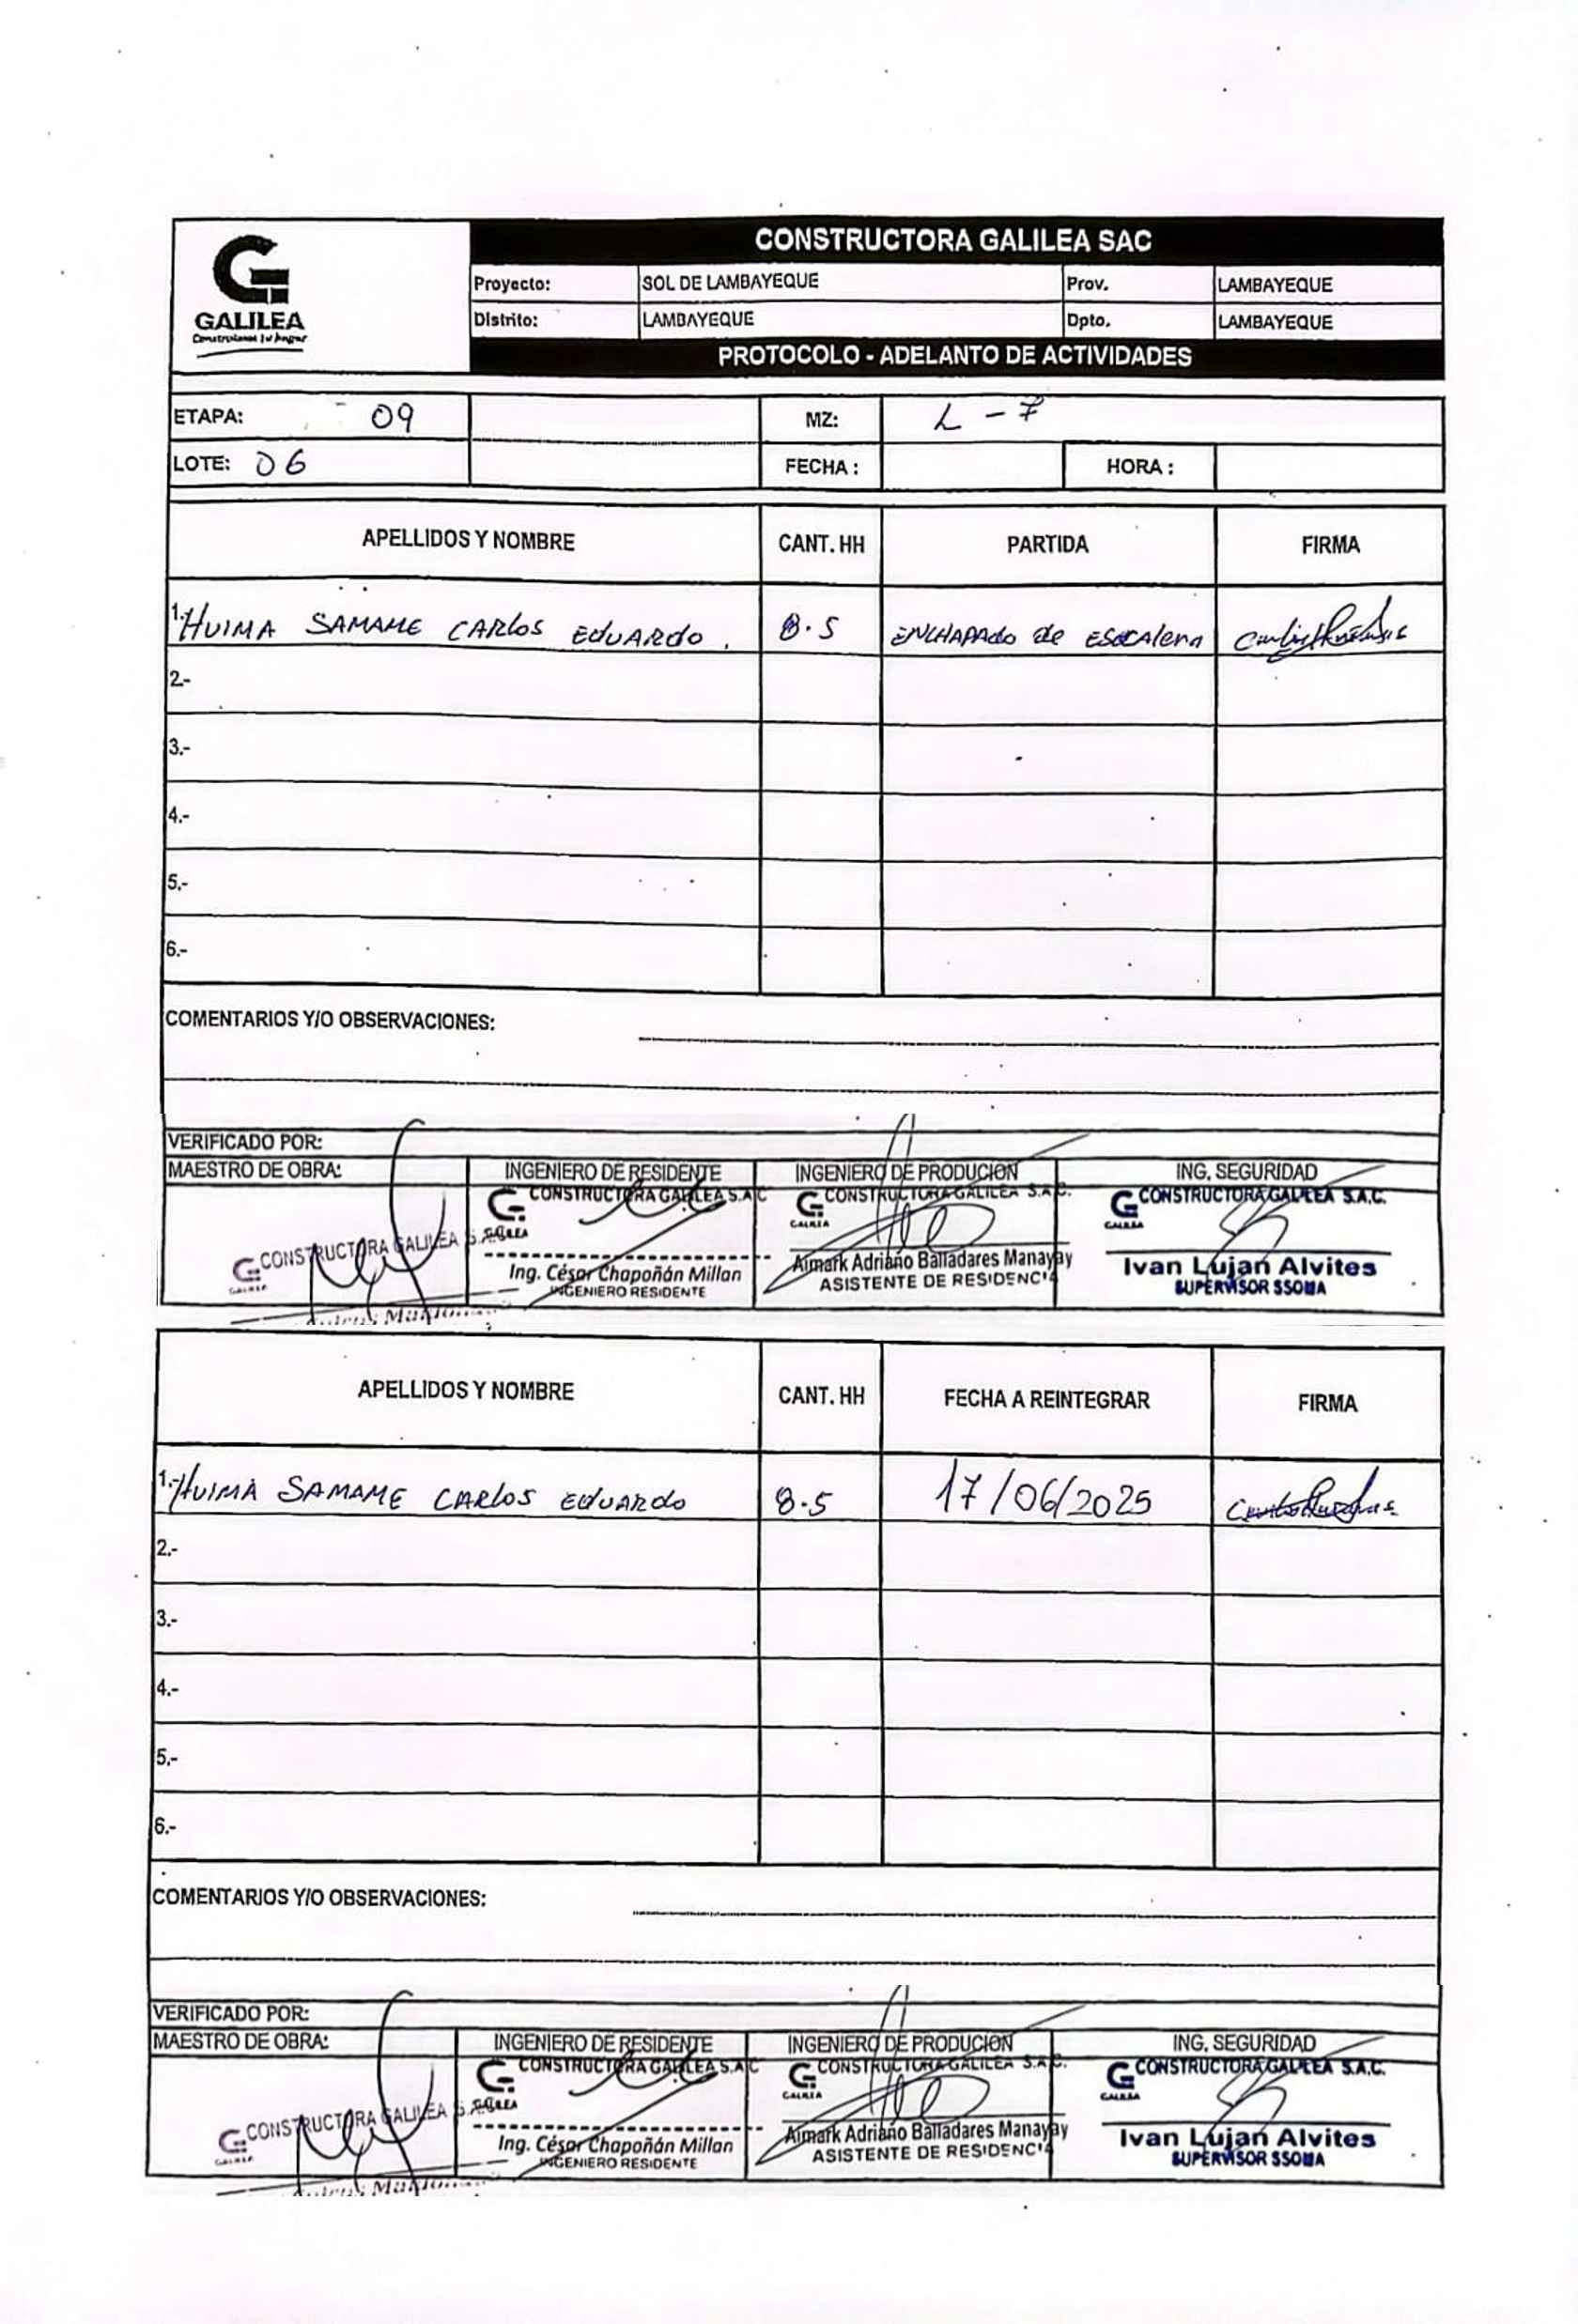 CONSTRUCTORA GALILEA SAC
GALILEA
Construimos tu hogar
Proyecto: SOL DE LAMBAYEQUE Prov. LAMBAYEQUE
Distrito: LAMBAYEQUE Dpto. LAMBAYEQUE
PROTOCOLO - ADELANTO DE ACTIVIDADES
ETAPA: 09 MZ: L - 7
LOTE: 06 FECHA : HORA :
APELLIDOS Y NOMBRE CANT. HH PARTIDA FIRMA
1.- HUIMA SAMAME CARLOS EDUARDO. 8.5 ENCHAPADO de ESCALERA
2.-
3.-
4.-
5.-
6.-
COMENTARIOS Y/O OBSERVACIONES:
VERIFICADO POR:
MAESTRO DE OBRA: INGENIERO DE RESIDENTE INGENIERO DE PRODUCION ING. SEGURIDAD
CONSTRUCTORA GALILEA S.A.C. CONSTRUCTORA GALILEA S.A.C CONSTRUCTORA GALILEA S.A.C. CONSTRUCTORA GALILEA S.A.C.
GALILEA GALILEA GALILEA GALILEA
Ing. César Chapoñán Millan Aimark Adriano Balladares Manayay Ivan Lujan Alvites
INGENIERO RESIDENTE ASISTENTE DE RESIDENCIA SUPERVISOR SSOMA
APELLIDOS Y NOMBRE CANT. HH FECHA A REINTEGRAR FIRMA
1.- HUIMA SAMAME CARLOS EDUARDO 8.5 17/06/2025
2.-
3.-
4.-
5.-
6.-
COMENTARIOS Y/O OBSERVACIONES:
VERIFICADO POR:
MAESTRO DE OBRA: INGENIERO DE RESIDENTE INGENIERO DE PRODUCION ING. SEGURIDAD
CONSTRUCTORA GALILEA S.A.C. CONSTRUCTORA GALILEA S.A.C CONSTRUCTORA GALILEA S.A.C. CONSTRUCTORA GALILEA S.A.C.
GALILEA GALILEA GALILEA GALILEA
Ing. César Chapoñán Millan Aimark Adriano Balladares Manayay Ivan Lujan Alvites
INGENIERO RESIDENTE ASISTENTE DE RESIDENCIA SUPERVISOR SSOMA